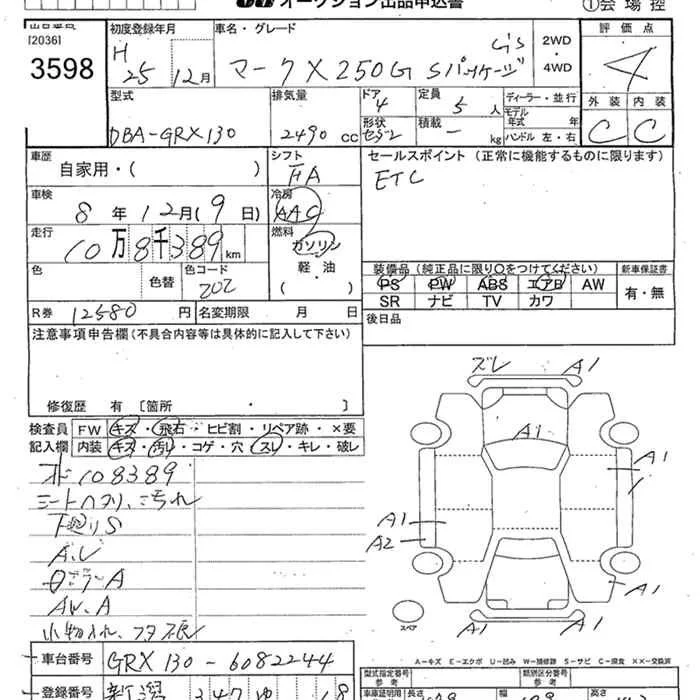 オークション出品申込書
①会場控
出品番号
[2036]
3598
初度登録年月
H
25 12月
車名・グレード
G's
マークX 250G Sパッケージ
2WD
・
4WD
評価点
4
外装 内装
C C
型式
DBA-GRX130
排気量
2490 cc
ドア
4
形状
セダン
定員
5 人
積載
－ kg
ディーラー・並行
モデル年式 年
ハンドル 左・右
車歴
自家用・( )
シフト
FA
セールスポイント(正常に機能するものに限ります)
ETC
車検
8 年 12月(9 日)
冷房
AAC
走行
10万8千389km
燃料
ガソリン
軽・油
( )
色
色替
色コード
202
装備品(純正品に限り○をつけてください)
PS PW ABS エアB AW
SR ナビ TV カワ
新車保証書
有・無
R券 12580 円
名変期限 月 日
後日品
注意事項申告欄(不具合内容等は具体的に記入して下さい)
修復歴 有 [箇所 ・ ]
検査員記入欄
FW キズ・飛石・ヒビ割・リペア跡・×要
内装 キズ・汚れ・コゲ・穴・スレ・キレ・破レ
108389
シートヘタリ、汚れ
下廻りS
AW.A
ズレ A1
A1
A1
A1
A2
A1
A1
A1
スペア
車台番号 GRX130-6082244
登録番号 新潟 347 ゆ 18
A－キズ E－エクボ U－凹み W－補修跡 S－サビ C－腐食 XX－交換済
型式指定番号
参考
類別区分番号
参考
車庫証明用
長さ
幅
高さ